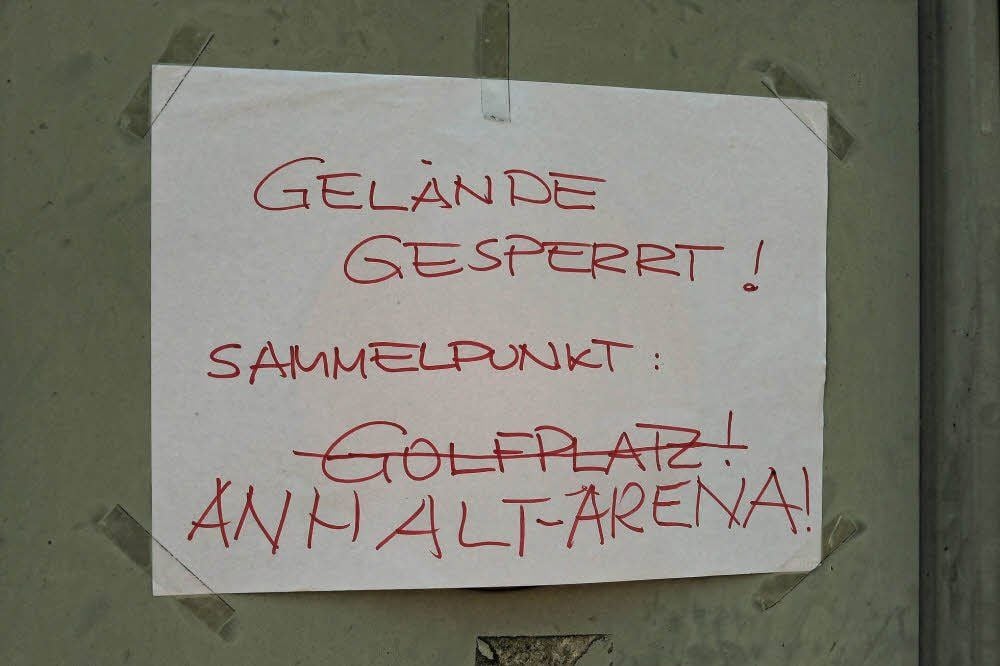 GELÄNDE
GESPERRT!
SAMMELPUNKT:
GOLFPLATZ!
ANHALT-ARENA!